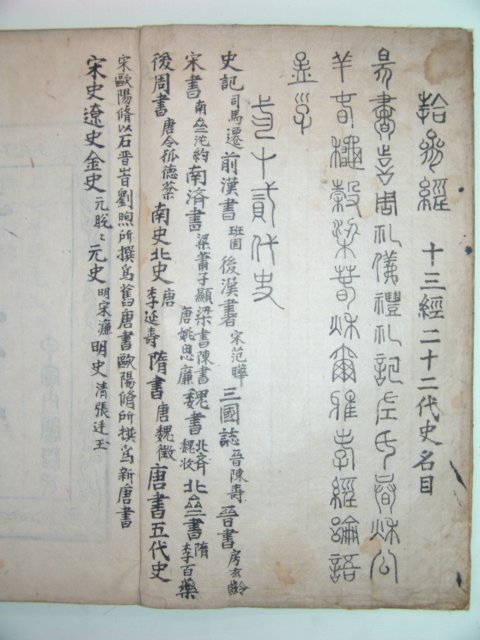 拾參經 十三經二十二代史名目
易書詩周礼儀禮礼記左氏春秋公
羊春秋穀梁春秋爾雅孝經論語
孟子
十貳代史
史記 司馬遷 前漢書 班固 後漢書 宋范曄 三國誌 晉陳壽 晉書 房玄齡
宋書 南亝沈約 南濟書 梁蕭子顯 梁書陳書 唐姚思廉 魏書 北斉魏收 北亝書 隋李百藥
後周書 唐令狐德棻 南史北史 唐李延壽 隋書 唐魏徵 唐書五代史
宋歐陽脩以石晉旹劉煦所撰爲舊唐書歐陽脩所撰爲新唐書
宋史遼史金史 元脫〻 元史 明宋濂 明史 清張廷玉